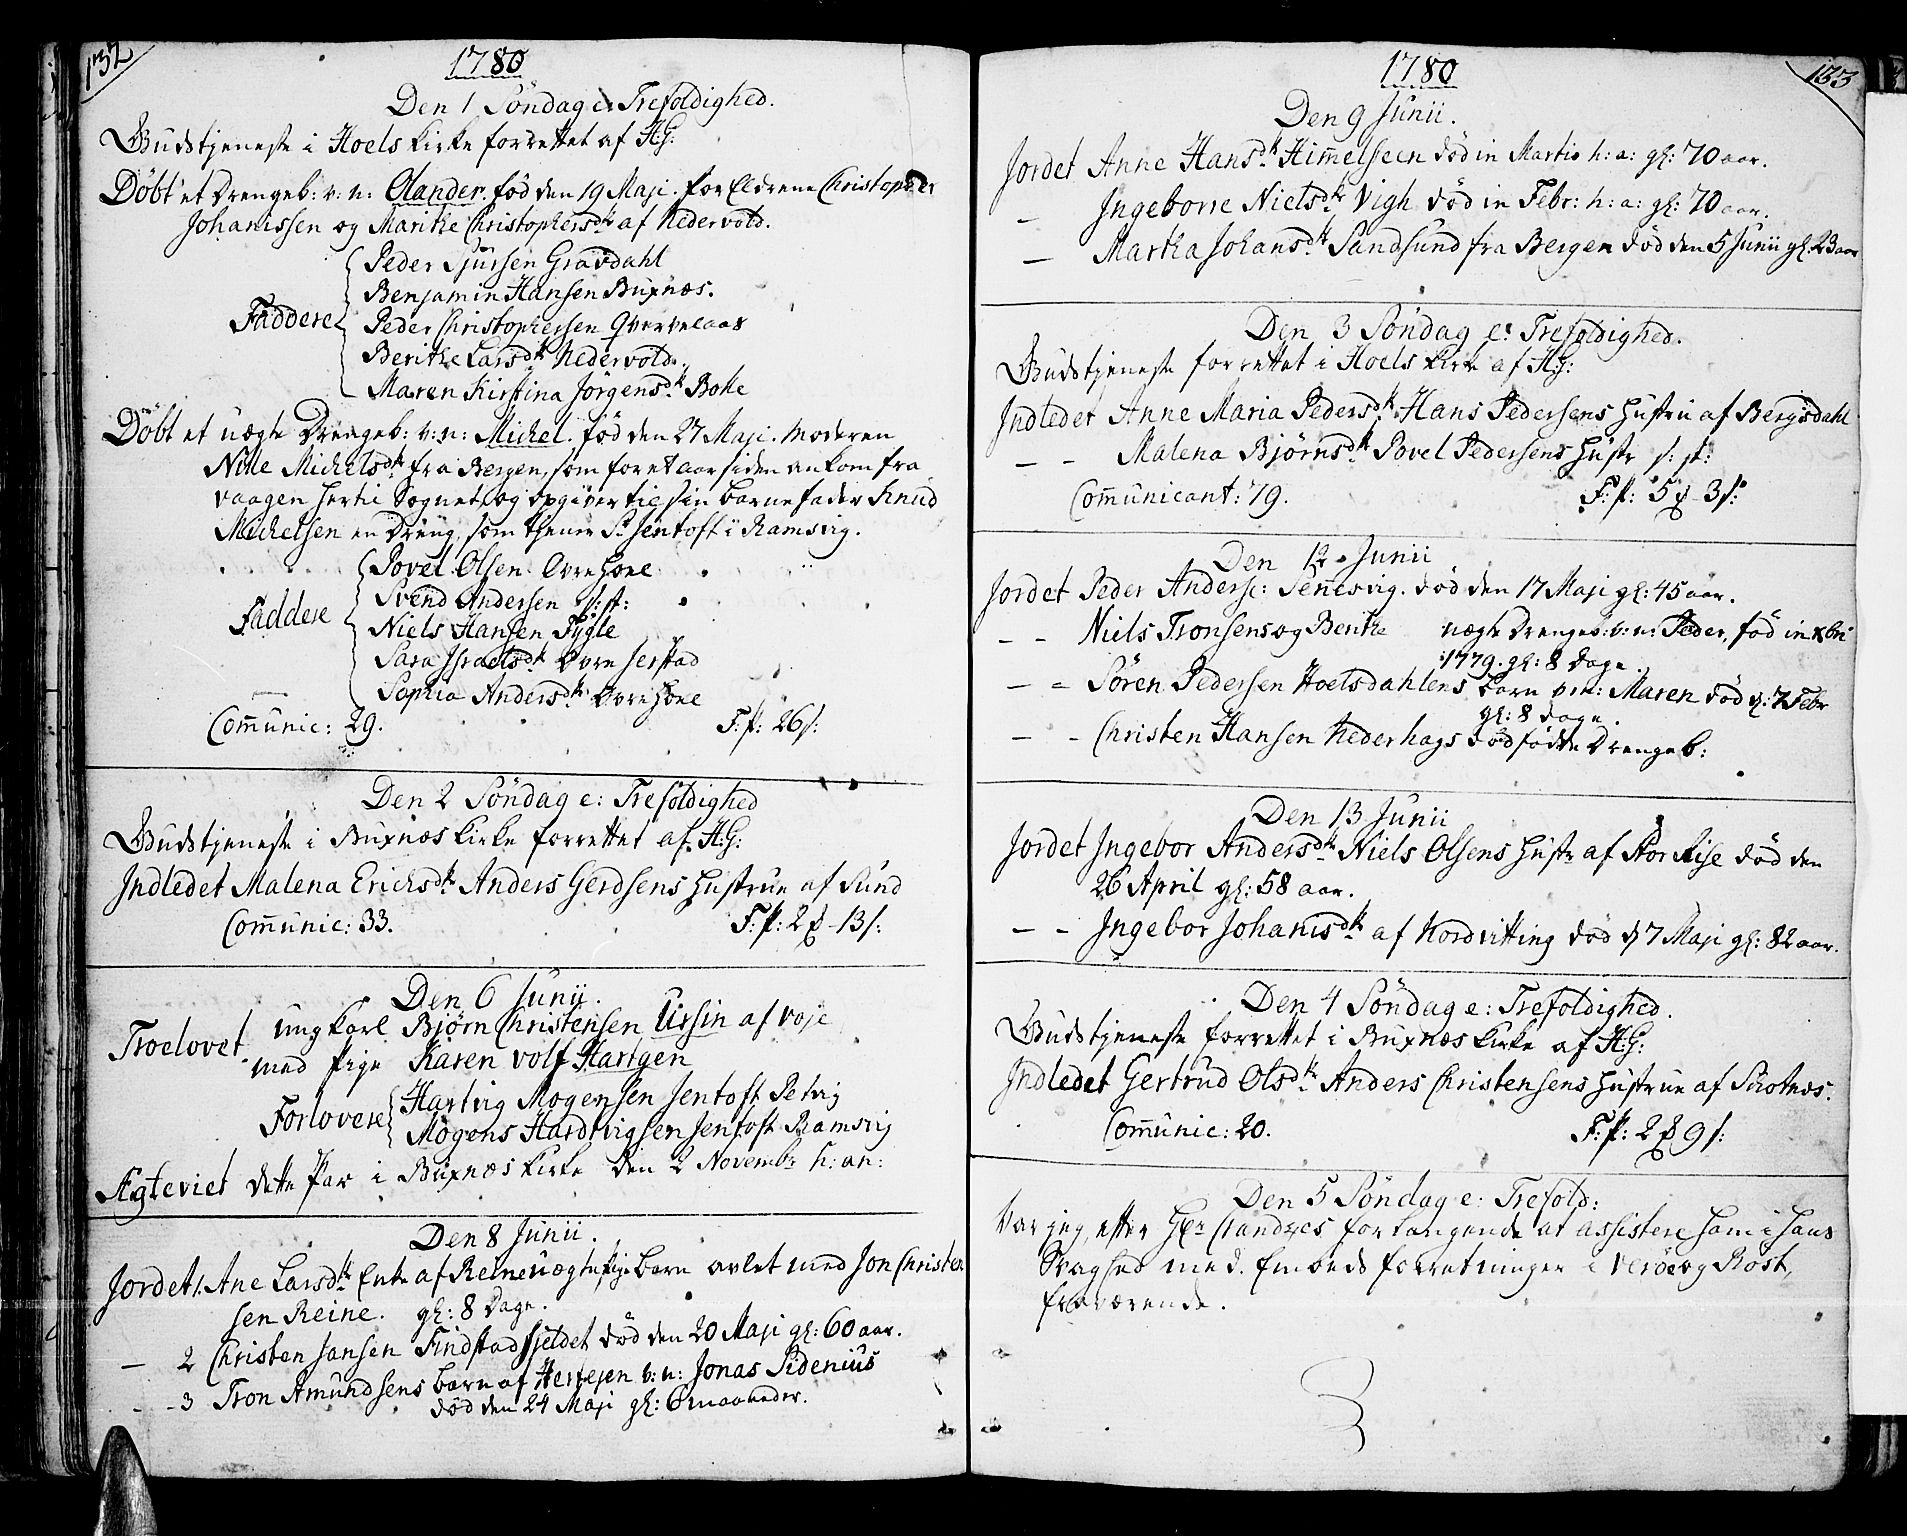 132
1780
Den 1 Søndag e: Trefoldighed.
Gudstjeneste i Hoels Kirke forrettet af H:G:
Døbt et Drengeb: v: n: Olander. fød den 19 Maji. Forældrene Christopher
Johannssen og Marithe Christophersdtr af Nedervold.
Peder Sjursen Gravdahl
Benjamin Hansen Buxnæs.
Faddere Peder Christophersen Qvervelaas
Berithe Larsdtr Nedervold.
Maren Kirstina Jørgensdtr Bolle
Døbt et uægte Drengeb: v: n: Michel. fød den 27 Maji. Moderen
Nille Michelsdtr fra Bergen, som for et aar siden ankom fra
Vaagen her til Sognet, og opgiver til sin barnefader Knud
Michelsen en Dreng, som tjener Sr Jentoft i Ramsvig.
Povel Olsen Øvre Hoel
Svend Andersen s: st:
Faddere Niels Hansen Fygle
Sara Israelsdtr Øvre Jerstad
Sophia Andersdtr Øvre Hoel
Comunic: 29. F: p: 26 s:
Den 2 Søndag e: Trefoldighed
Gudstjeneste i Buxnæs Kirke forrettet af H:G:
Indledet Malena Erichsdtr Anders Gerdsens Hustrue af Sund
Comunic: 33. F: p: 2 – 13 s:
Den 6 Junii.
Troelovet ungkarl Bjørn Christensen Ursin af Voje
med Pige Karen Volf Hartgen
Forlovere Hartvig Mogensen Jentoft Petvig
Mogens Hardtvigsen Jentoft Ramsvig
Ægteviet dette Par i Buxnæs Kirke den 2 Novembr h: an:
Den 8 Junii.
Jordet 1. Ane Larsdtr Enke af Reine uægte pige Barn avlet med Jon Christen
sen Reine. gl: 8 Dage.
— 2 Christen Jansen Findstad fjeldet død den 20 Maji gl: 60 aar.
- - 3 Tron Amundsens barn af v: n: Jonas Sidenius
død den 24 Maji gl: 6 maaneder.
133
1780
Den 9 Junii.
Jordet Anne Hansdtr Himelsteen død in Martio h: a: gl: 70 aar.
— Ingeborre Nielsdtr Vigh død in Febr: h: a: gl: 70 aar.
— Martha Johansdtr Sandsund fra Bergen død den 5 Junii gl: 23 aar
Den 3 Søndag e: Trefoldighed.
Gudstjeneste forrettet i Hoels Kirke af H:G:
Indledet Anne Maria Pedersdtr Hans Pedersens Hustru af Bergsdahl
— - Malena Bjørnsdtr Povel Pedersens Hustr s: st:
Comunicant: 79. F: p: 5 – 3 s:
Den 12 Junii
Jordet Peder Anders: Sennesvig. død den 17 Maji gl: 45 aar.
— - Niels Tronsens og Berithe uægte Drengeb: v: n: Peder, fød in xbri
1779. gl: 8 Dage.
— - Søren Pedersen Hoelsdahlens barn v: n: Maren død d: 7 Febr
gl: 8 dage.
— - Christen Hansen Nederhags dødfødte Drengeb:
Den 13 Junii
Jordet Ingebor Andersdtr Niels Olsens Hustr af Stor Rise død den
26 April gl: 58 aar.
— - Ingebor Johanisdtr af Nordvitting død d: 7 Maji gl: 82 aar.
Den 4 Søndag e: Trefoldighed.
Gudstjeneste forrettet i Buxnæs Kirke af H:G:
Indledet Gertrud Olsdtr Anders Christensens Hustrue af Skotnæs.
Comunic: 20. F: p: 2 9 s:
Den 5 Søndag e: Trefold:
Var jeg, efter Hr. forlangende at assistere ham i hans
Svaghed med Embeds forretninger i Verøe og Røst,
fraværende.